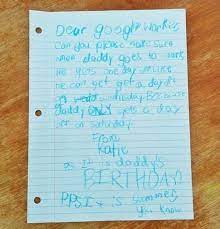 Dear google worker
Can you please make sure
when daddy goes to work,
he gets one day off. Like
he can get a day off
on wednesday. Because
daddy ONLY gets a day
off on saturday.
From
Katie
P.S. It is daddy's
BIRTHDAY!
P.P.S. It is summer,
you know